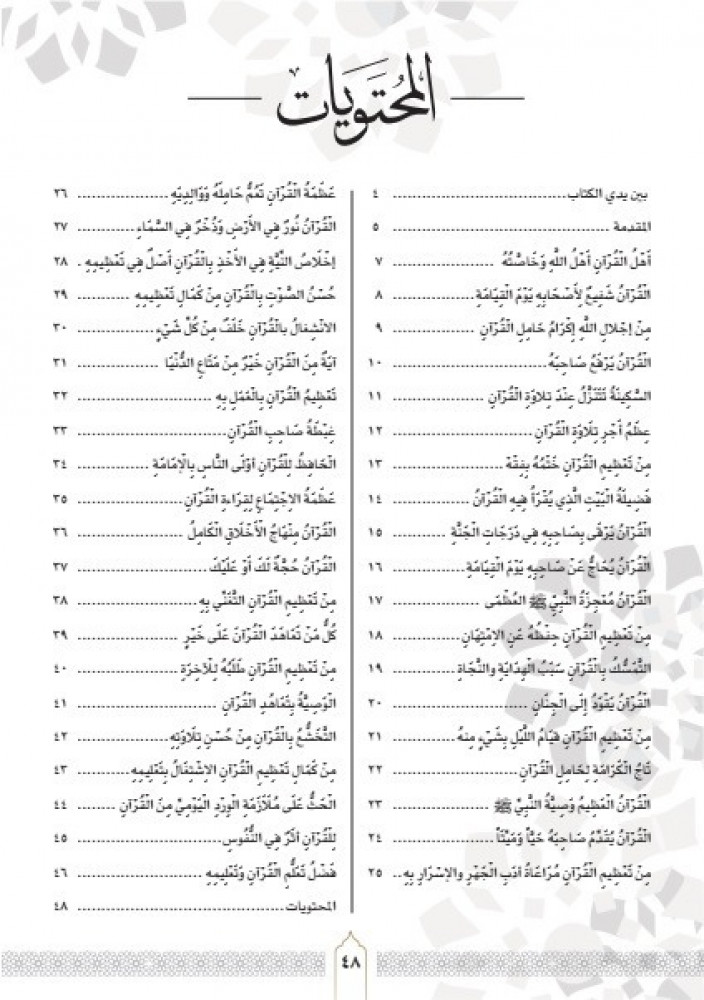 المُحْتَوَيَات
بين يدي الكتاب .................................. ٤
المقدمة .................................. ٥
أَهْلُ القُرْآنِ أَهْلُ اللَّهِ وَخَاصَّتُهُ .................. ٧
القُرْآنُ شَفِيعٌ لِأَصْحَابِهِ يَوْمَ القِيَامَةِ .................. ٨
مِنْ إِجْلَالِ اللَّهِ إِكْرَامُ حَامِلِ القُرْآنِ .................. ٩
القُرْآنُ يَرْفَعُ صَاحِبَهُ .................. ١٠
السَّكِينَةُ تَتَنَزَّلُ عِنْدَ تِلَاوَةِ القُرْآنِ .................. ١١
عِظَمُ أَجْرِ تِلَاوَةِ القُرْآنِ .................. ١٢
مِنْ تَعْظِيمِ القُرْآنِ خَتْمُهُ بِفِقْهٍ .................. ١٣
فَضِيلَةُ البَيْتِ الَّذِي يُقْرَأُ فِيهِ القُرْآنُ .................. ١٤
القُرْآنُ يَرْقَى بِصَاحِبِهِ فِي دَرَجَاتِ الجَنَّةِ .................. ١٥
القُرْآنُ يُحَاجُّ عَنْ صَاحِبِهِ يَوْمَ القِيَامَةِ .................. ١٦
القُرْآنُ مُعْجِزَةُ النَّبِيِّ ﷺ العُظْمَى .................. ١٧
مِنْ تَعْظِيمِ القُرْآنِ حِفْظُهُ عَنِ الِامْتِهَانِ .................. ١٨
التَّمَسُّكُ بِالقُرْآنِ سَبَبُ الهِدَايَةِ وَالنَّجَاةِ .................. ١٩
القُرْآنُ يَقُودُ إِلَى الجِنَانِ .................. ٢٠
مِنْ تَعْظِيمِ القُرْآنِ قِيَامُ اللَّيْلِ بِشَيْءٍ مِنْهُ .................. ٢١
تَاجُ الكَرَامَةِ لِحَامِلِ القُرْآنِ .................. ٢٢
القُرْآنُ العَظِيمُ وَصِيَّةُ النَّبِيِّ ﷺ .................. ٢٣
القُرْآنُ يُقَدِّمُ صَاحِبَهُ حَيًّا وَمَيِّتًا .................. ٢٤
مِنْ تَعْظِيمِ القُرْآنِ مُرَاعَاةُ أَدَبِ الجَهْرِ والإِسْرَارِ بِهِ .. ٢٥
عَظَمَةُ القُرْآنِ تَعُمُّ حَامِلَهُ وَوَالِدِيهِ .................. ٢٦
القُرْآنُ نُورٌ فِي الأَرْضِ وَذُخْرٌ فِي السَّمَاءِ .................. ٢٧
إِخْلَاصُ النِّيَّةِ فِي الأَخْذِ بِالقُرْآنِ أَصْلٌ فِي تَعْظِيمِهِ . ٢٨
حُسْنُ الصَّوْتِ بِالقُرْآنِ مِنْ كَمَالِ تَعْظِيمِهِ .................. ٢٩
الانْشِغَالُ بالقُرْآنِ خَلَفٌ مِنْ كُلِّ شَيْءٍ .................. ٣٠
آيَةٌ مِنَ القُرْآنِ خَيْرٌ مِنْ مَتَاعِ الدُّنْيَا .................. ٣١
تَعْظِيمُ القُرْآنِ بِالْعَمَلِ بِهِ .................. ٣٢
غِبْطَةُ صَاحِبِ القُرْآنِ .................. ٣٣
الحَافِظُ لِلْقُرْآنِ أَوْلَى النَّاسِ بِالإِمَامَةِ .................. ٣٤
عَظَمَةُ الاِجْتِمَاعِ لِقِرَاءَةِ القُرْآنِ .................. ٣٥
القُرْآنُ مِنْهَاجُ الأَخْلَاقِ الكَامِلُ .................. ٣٦
القُرْآنُ حُجَّةٌ لَكَ أَوْ عَلَيْكَ .................. ٣٧
مِنْ تَعْظِيمِ القُرْآنِ التَّغَنِّي بِهِ .................. ٣٨
كُلُّ مَنْ تَعَاهَدَ القُرْآنَ عَلَى خَيْرٍ .................. ٣٩
مِنْ تَعْظِيمِ القُرْآنِ طَلَبُهُ لِلْآخِرَةِ .................. ٤٠
الْوَصِيَّةُ بِتَعَاهُدِ القُرْآنِ .................. ٤١
التَّخَشُّعُ بِالقُرْآنِ مِنْ حُسْنِ تِلَاوَتِهِ .................. ٤٢
مِنْ كَمَالِ تَعْظِيمِ القُرْآنِ الاِشْتِغَالُ بِتَعْلِيمِهِ .................. ٤٣
الحَثُّ عَلَى مُلَازَمَةِ الوِرْدِ اليَوْمِيِّ مِنَ القُرْآنِ .................. ٤٤
لِلْقُرْآنِ أَثَرٌ فِي النُّفُوسِ .................. ٤٥
فَضْلُ تَعَلُّمِ القُرْآنِ وَتَعْلِيمِهِ .................. ٤٦
المحتويات .................................. ٤٨
٤٨